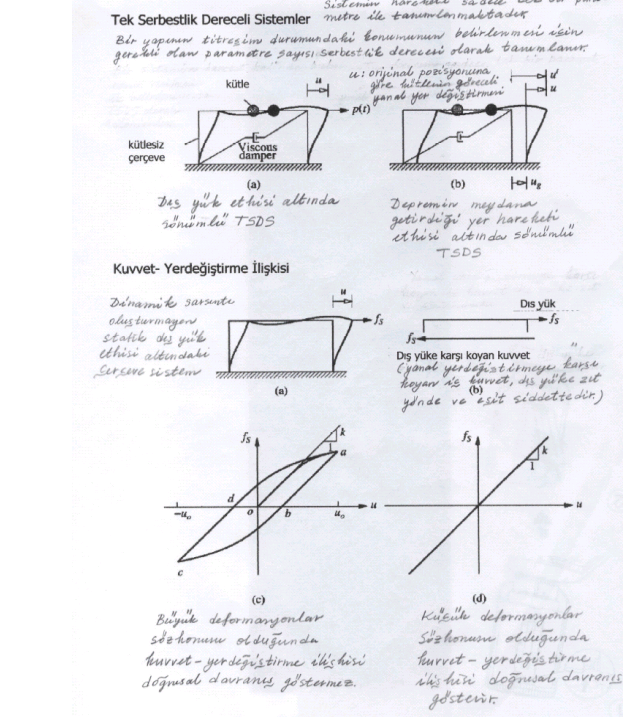 Sistemin hareketi sadece
Tek Serbestlik Dereceli Sistemler
metre ile tanımlanmaktadır
Bir yapının titreşim durumundaki konumunun belirlenmesi için
gerekli olan parametre sayısı serbestlik derecesi olarak tanımlanır.
kütle
u
u: orijinal pozisyonuna
göre kütlenin göreceli
yanal yer değiştirmesi
uᵗ
u
p(t)
kütlesiz
çerçeve
Viscous
damper
(a)
(b)
u_g
Dış yük etkisi altında
sönümlü TSDS
Depremin meydana
getirdiği yer hareketi
etkisi altında sönümlü
TSDS
Kuvvet- Yerdeğiştirme İlişkisi
Dinamik sarsıntı
oluşturmayan
statik dış yük
etkisi altındaki
çerçeve sistem
u
fs
(a)
Dıs yük
fs
fs
Dış yüke karşı koyan kuvvet
(yanal yerdeğiştirmeye karşı
koyan iç kuvvet, dış yüke zıt
(b)
yönde ve eşit şiddettedir.)
fs
k
1
a
d
o
b
-u₀
u₀
u
c
(c)
fs
k
1
u
(d)
Büyük deformasyonlar
sözkonusu olduğunda
kuvvet-yerdeğiştirme ilişkisi
doğrusal davranış göstermez.
Küçük deformasyonlar
sözkonusu olduğunda
kuvvet-yerdeğiştirme
ilişkisi doğrusal davranış
gösterir.